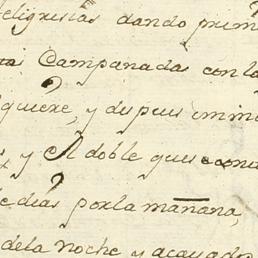 feligresias dando prim
Campanadas con la
quiere, y despues inme
y el doble que con
de dias por la mañana,
de la noche y acavado